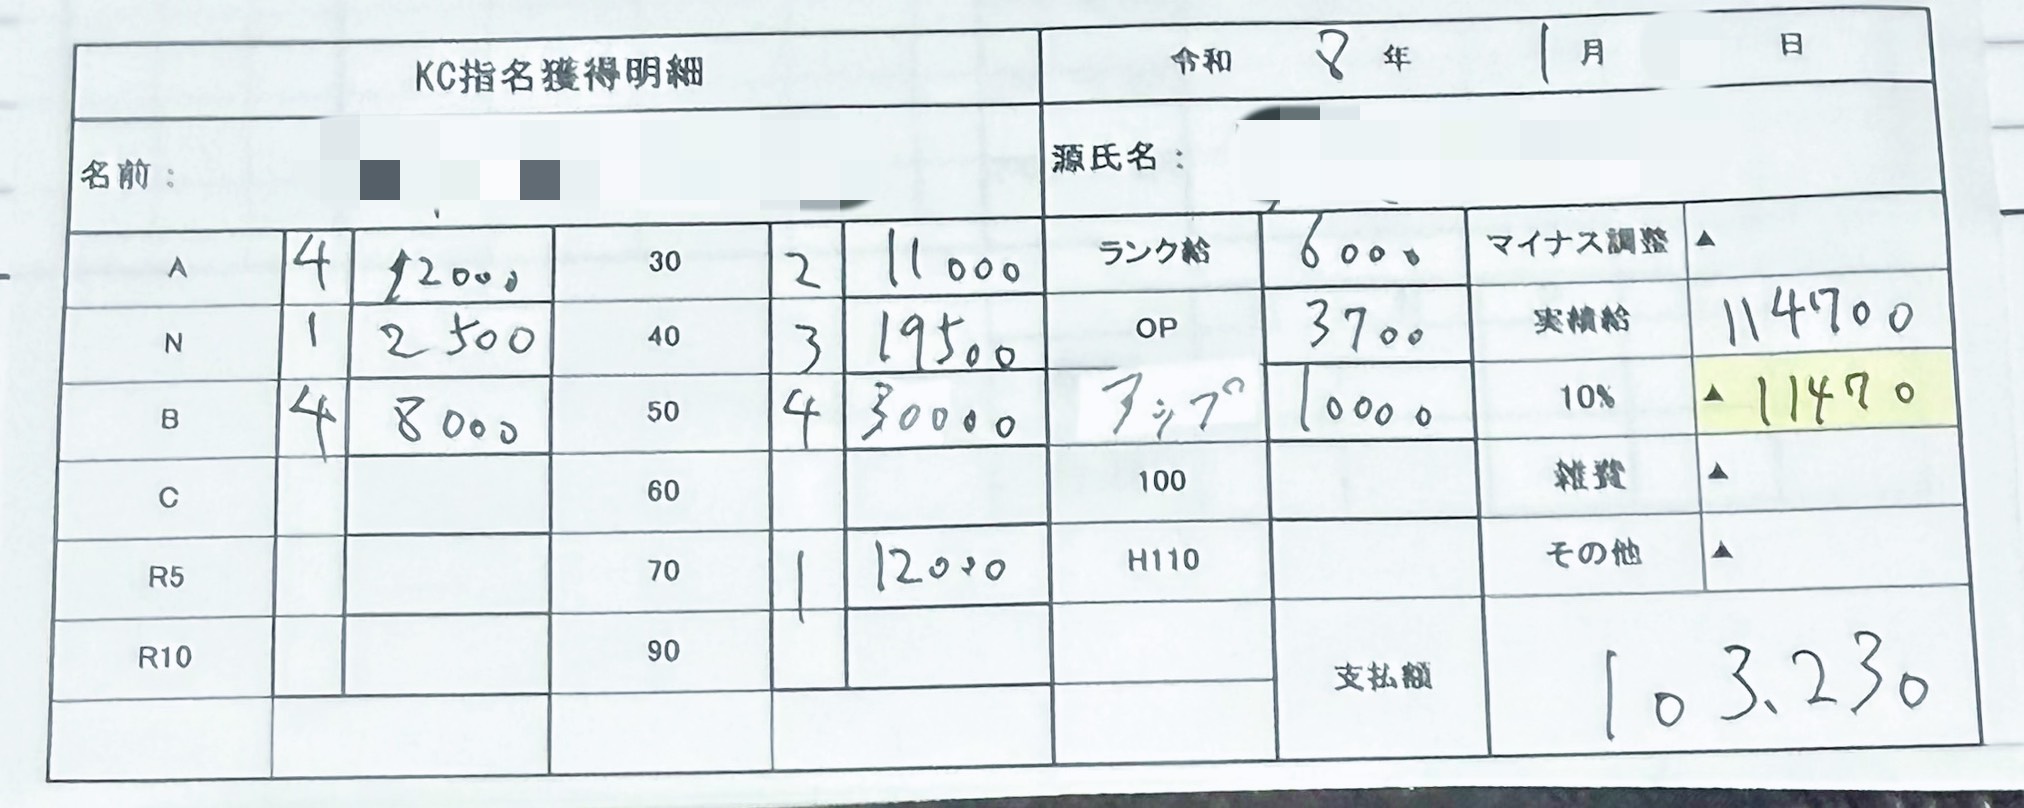 KC指名獲得明細 令和 8 年 1 月 日
名前： 源氏名：
A 4 12000 30 2 11000 ランク給 6000 マイナス調整 ▲
N 1 2500 40 3 19500 OP 3700 実績給 114700
B 4 8000 50 4 30000 アップ 10000 10% ▲ 11470
C 60 100 雑費 ▲
R5 70 1 12000 H110 その他 ▲
R10 90 支払額 103,230